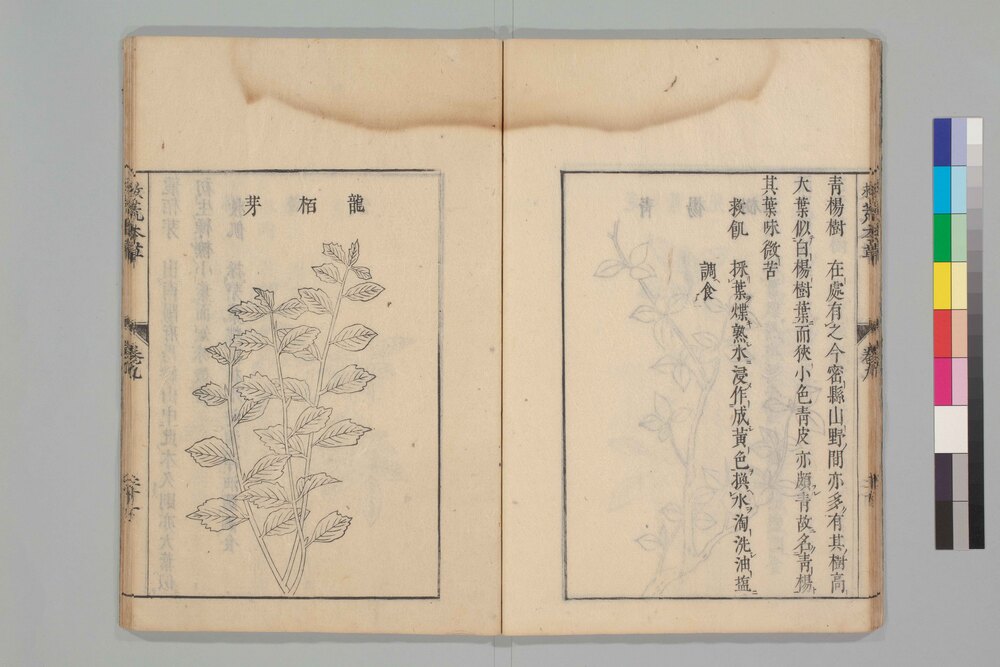 青楊樹 在處有之今密縣山野間亦多有其樹高
大葉似白楊樹葉而狹小色青皮亦頗青故名青楊
其葉味微苦
救飢 採葉煠熟水浸作成黃色換水淘洗油鹽
調食
龍栢芽
救荒本草
卷九